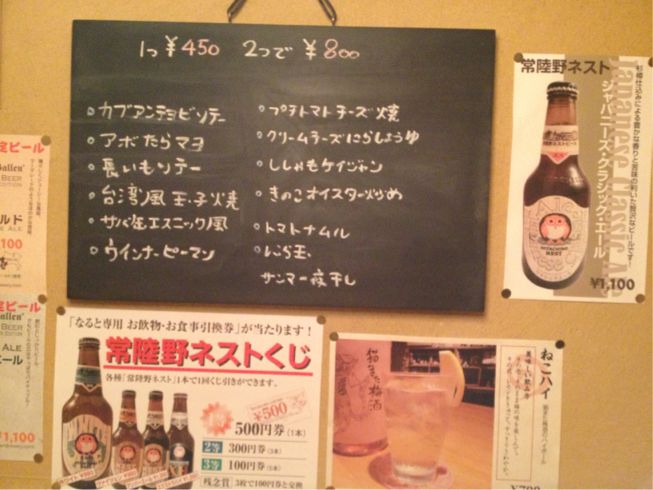 1つ ¥450 2つで ¥800
○カブアンチョビソテー
○アボたらマヨ
○長いもソテー
○台湾風玉子焼
○サバ缶エスニック風
○ウインナーピーマン
○プチトマトチーズ焼
○クリームチーズにらしょうゆ
○ししゃもケイジャン
○きのこオイスター炒め
○トマトナムル
○にら玉
サンマ一夜干し
常陸野ネスト
ジャパニーズ・クラシック・エール
Japanese Classic Ale
杉樽仕込みによる豊かな香りと苦味の利いた贅沢なビールです!
HITACHINO
NEST
¥1,100
定ビール
BEER
ALE
1,100
定ビール
BEER
ALE
¥1,100
「なると専用 お飲物・お食事引換券」が当たります!
常陸野ネストくじ
各種「常陸野ネスト」1本で1回くじ引きができます。
¥500
500円券(1本)
2等 300円券(3本)
3等 100円券(5本)
残念賞 3枚で100円券と交換
ねこハイ
美味しい飲み方
梅酒
¥700